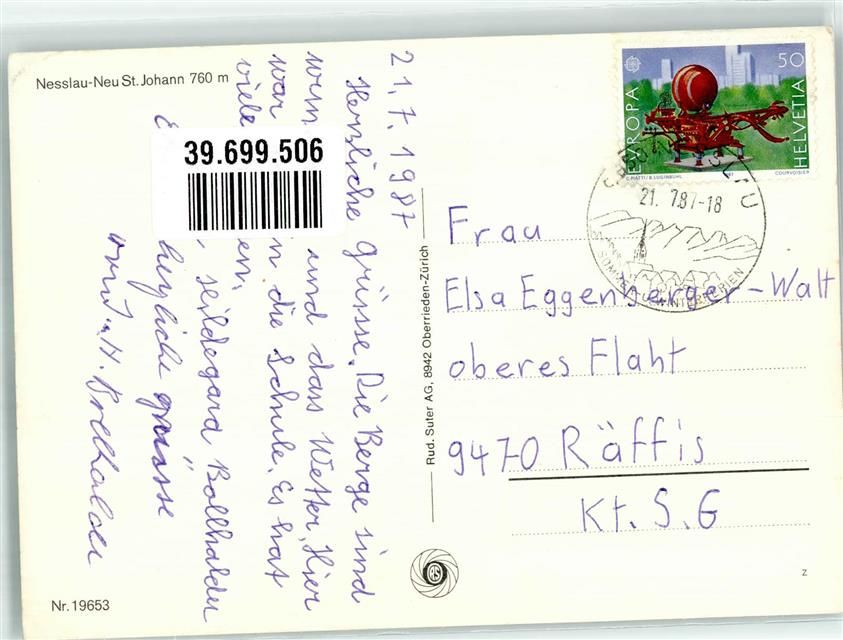 Nesslau-Neu St. Johann 760 m
21.7.1987
Herzliche Grüsse. Die Berge sind
und das Wetter. Hier
war in die Schule. Es hat
viele
Seildegard Bollhalder
herzliche grüsse
u. H. Bollhalder
39.699.506
Nr. 19653
Rud. Suter AG, 8942 Oberrieden-Zürich
RS
EUROPA
50
HELVETIA
C.PIATTI / B.LUGINBÜHL
87
COURVOISIER
21. 7.87-18
SOMMER- U. WINTERFERIEN
Frau
Elsa Eggenberger-Walt
oberes Flaht
9470 Räffis
Kt. S. G
z